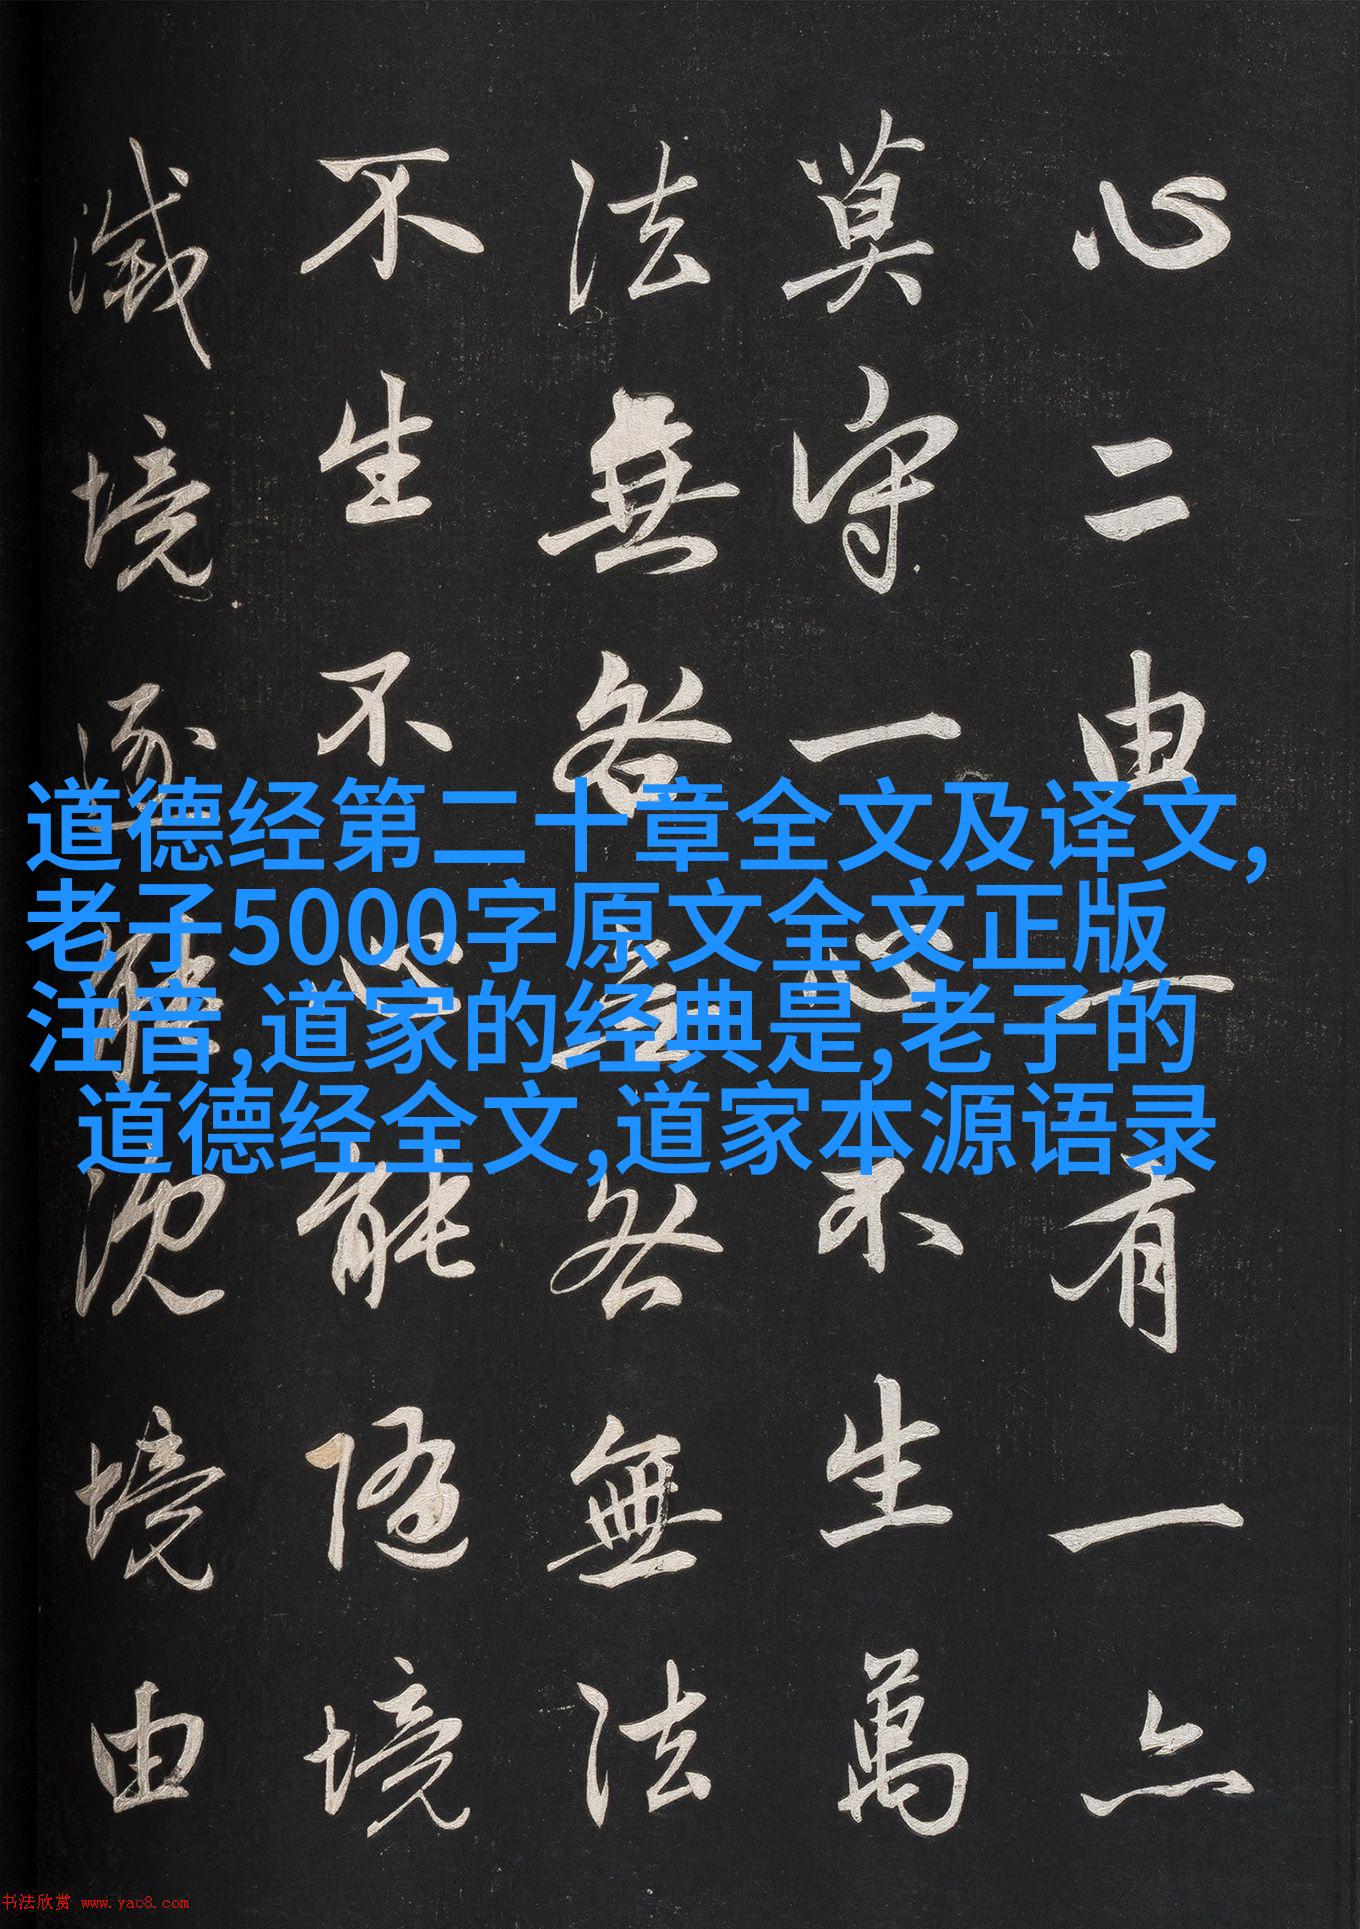 心二由一有一亦
莫守一心不生萬
法無咎無咎無法
不生不心能随境
滅境逐能沉境由
道德经第二十章全文及译文,
老子5000字原文全文正版
注音,道家的经典是,老子的
道德经全文,道家本源语录
书法欣赏 www.yac8.com